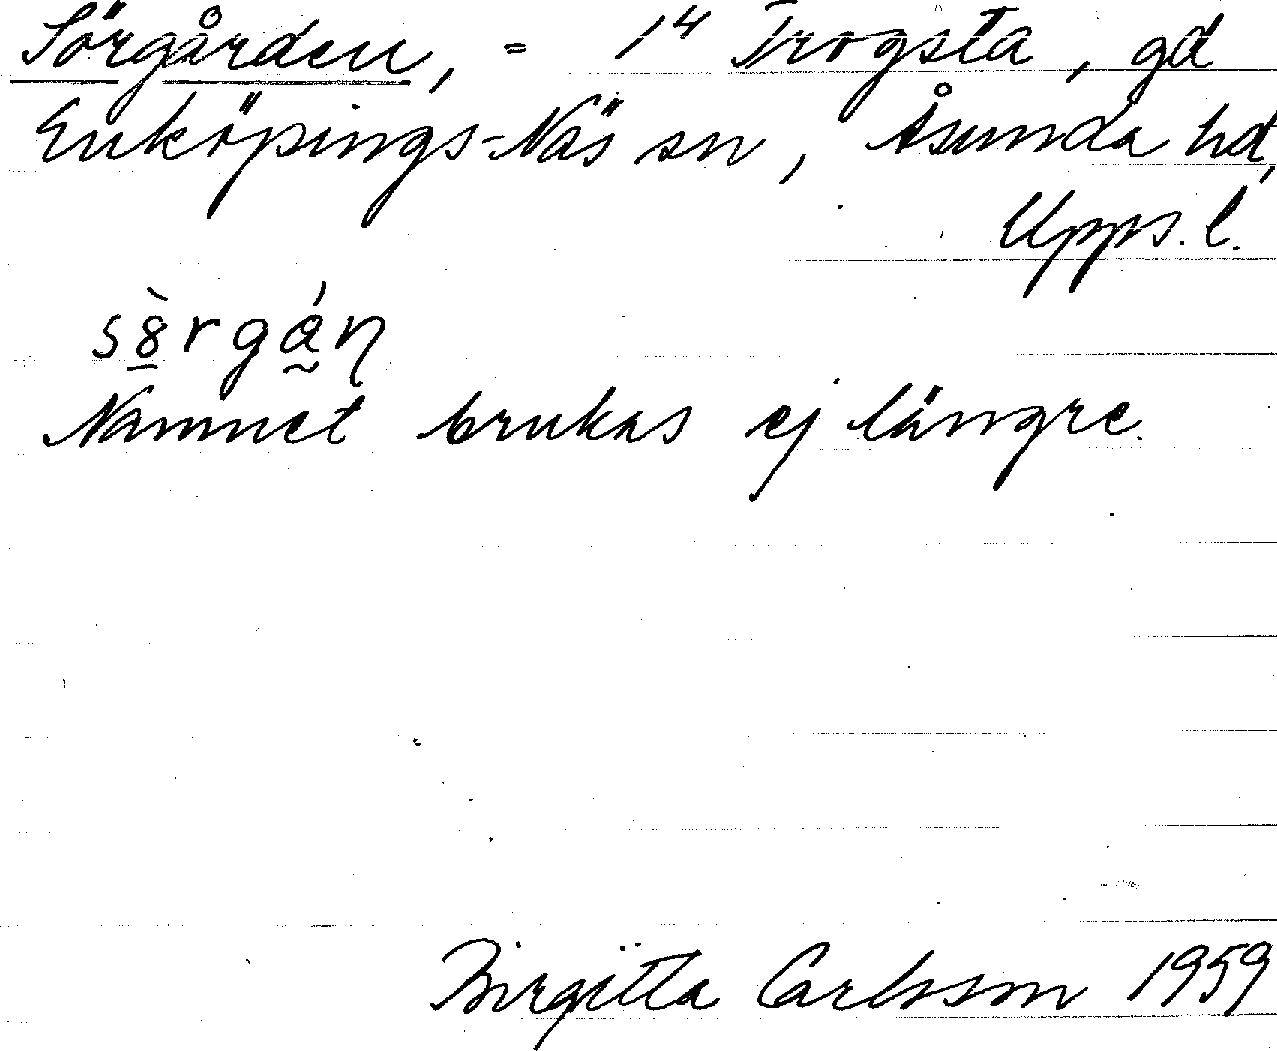 Sörgården, = 1⁴ Trögsta, gd
Enköpings-Näs sn, Åsunda hd,
Upps. l.
Namnet brukas ej längre.
Birgitta Carlsson 1959